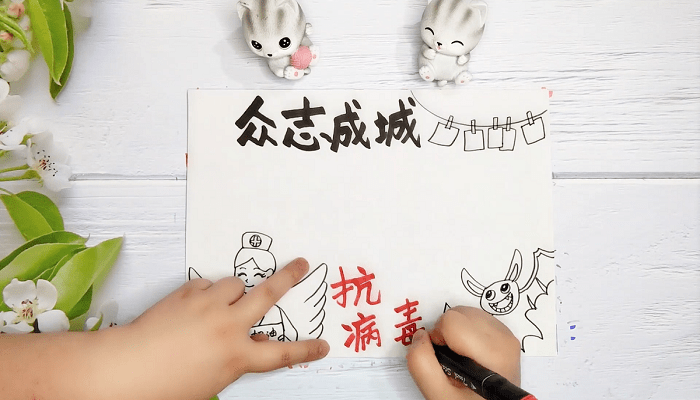 众志成城
抗
病毒